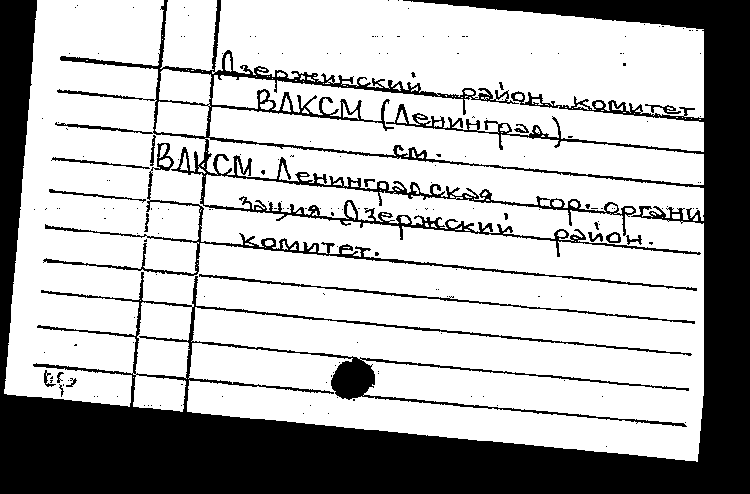 Дзержинский район. комитет
ВЛКСМ (Ленинград).
см.
ВЛКСМ. Ленинградская гор. органи
зация. Дзержский район.
комитет.